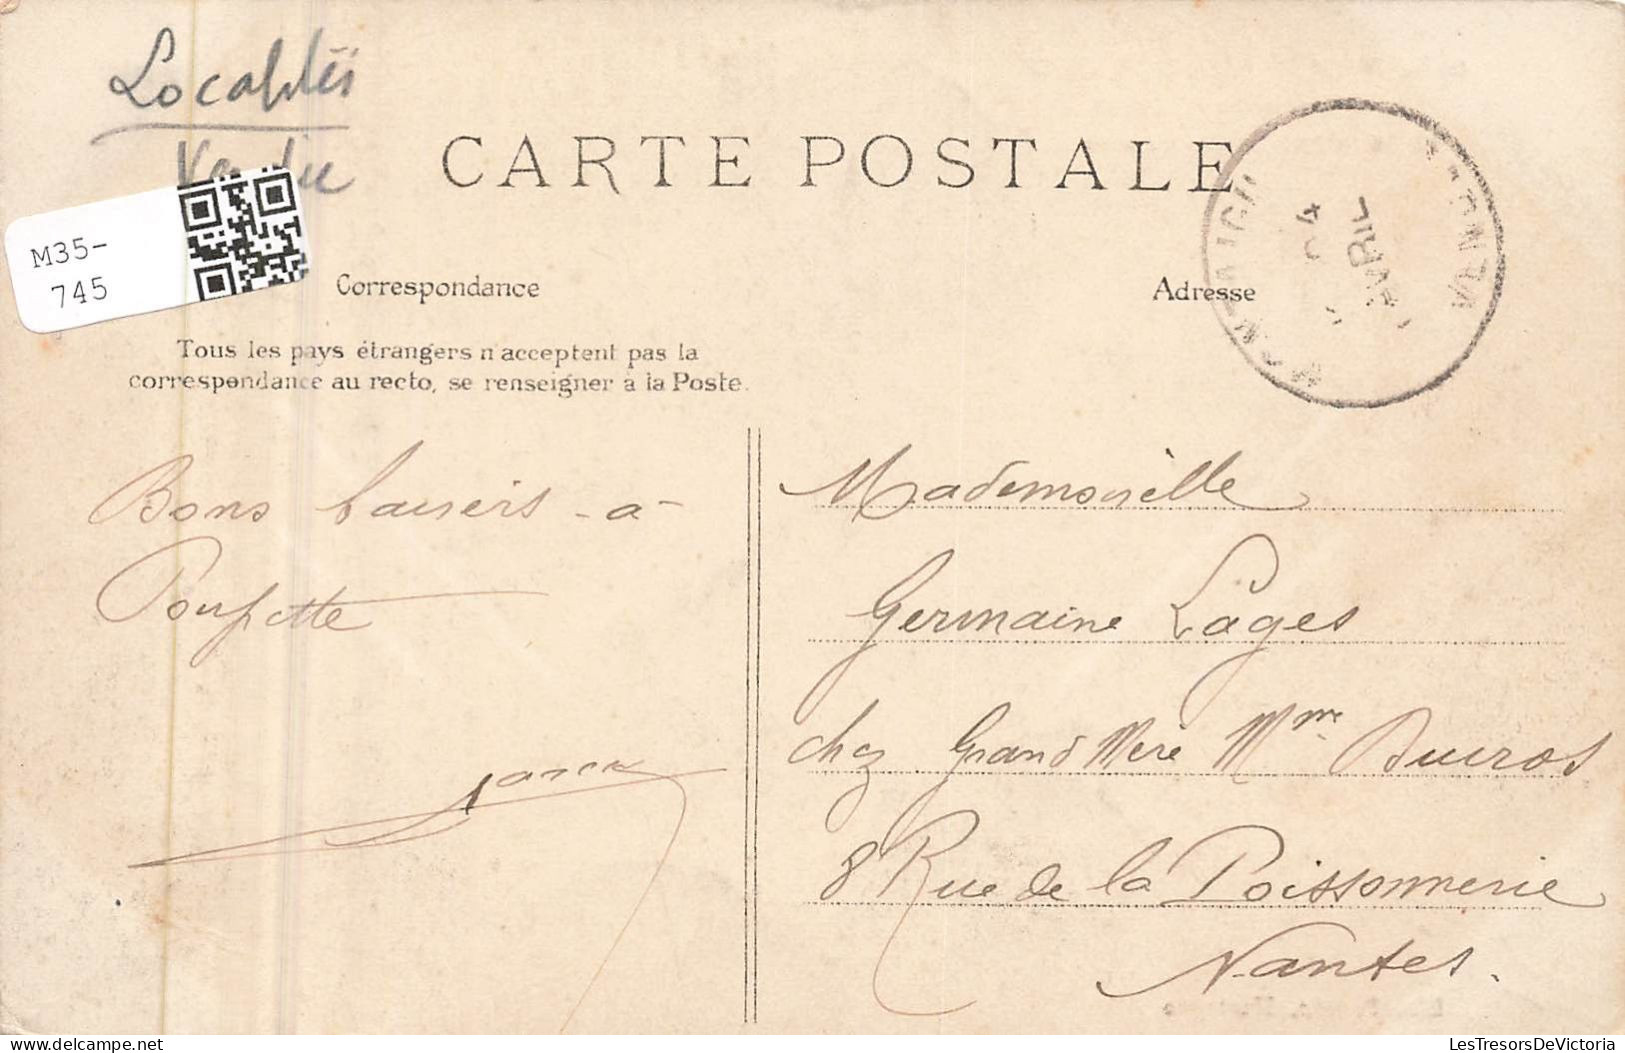 Localités
Vendée
CARTE POSTALE
M35-
745
Correspondance
Adresse
AVRIL
04
Tous les pays étrangers n'acceptent pas la
correspondance au recto, se renseigner à la Poste.
Bons baisers - a -
Poupette
Mademoiselle
Germaine Lages
chez Grand Mère Mme
8 Rue de la Poissonnerie
Nantes.
LesTresorsDeVictoria